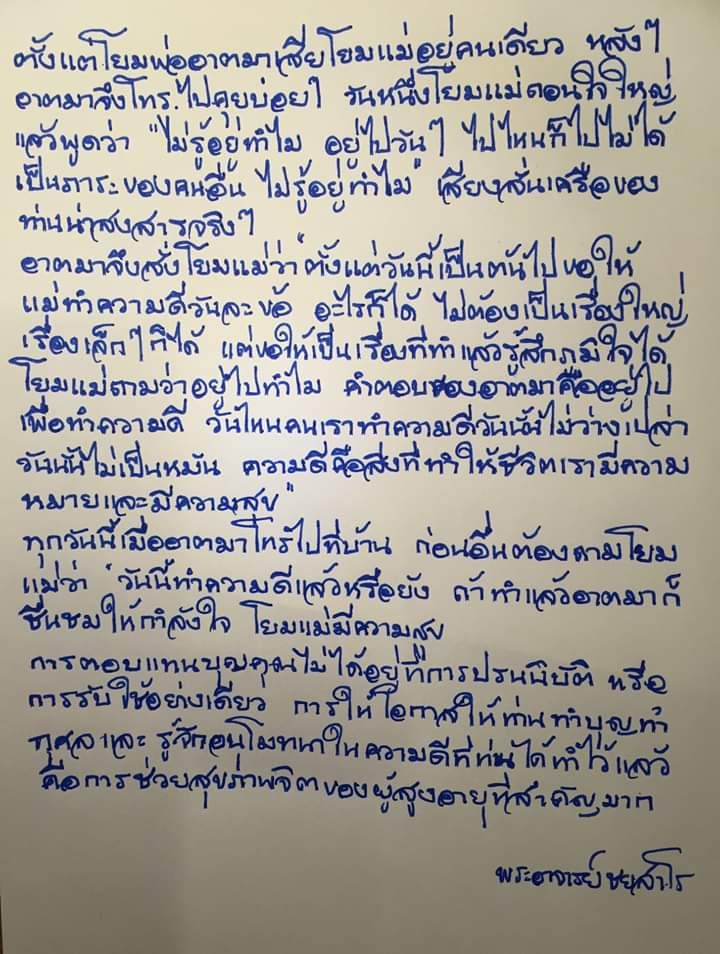 ตั้งแต่โยมพ่ออาตมาเสียโยมแม่อยู่คนเดียว หลังๆ
อาตมาจึงโทร.ไปคุยบ่อยๆ วันหนึ่งโยมแม่ถอนใจใหญ่
แล้วพูดว่า "ไม่รู้อยู่ทำไม อยู่ไปวันๆ ไปไหนก็ไปไม่ได้
เป็นภาระของคนอื่น ไม่รู้อยู่ทำไม" เสียงสั่นเครือของ
ท่านน่าสงสารจริงๆ
อาตมาจึงสั่งโยมแม่ว่า "ตั้งแต่วันนี้เป็นต้นไปขอให้
แม่ทำความดีวันละข้อ อะไรก็ได้ ไม่ต้องเป็นเรื่องใหญ่
เรื่องเล็กๆ ก็ได้ แต่ขอให้เป็นเรื่องที่ทำแล้วรู้สึกภูมิใจได้
โยมแม่ถามว่าอยู่ไปทำไม คำตอบของอาตมาคืออยู่ไป
เพื่อทำความดี วันไหนคนเราทำความดีวันนั้นไม่ว่างเปล่า
วันนั้นไม่เป็นหมัน ความดีคือสิ่งที่ทำให้ชีวิตเรามีความ
หมายและมีความสุข"
ทุกวันนี้เมื่ออาตมาโทร์ไปที่บ้าน ก่อนอื่นต้องถามโยม
แม่ว่า "วันนี้ทำความดีแล้วหรือยัง ถ้าทำแล้วอาตมาก็
ชื่นชมให้กำลังใจ โยมแม่มีความสุข
การตอบแทนบุญคุณไม่ได้อยู่ที่การปรนนิบัติ หรือ
การรับใช้อย่างเดียว การให้โอกาสให้ท่านทำบุญทำ
กุศลและ รู้จักอนุโมทนาในความดีที่ท่านได้ทำไว้แล้ว
คือการช่วยสุขภาพจิตของผู้สูงอายุที่สำคัญมาก
พระอาจารย์ชยสาโร